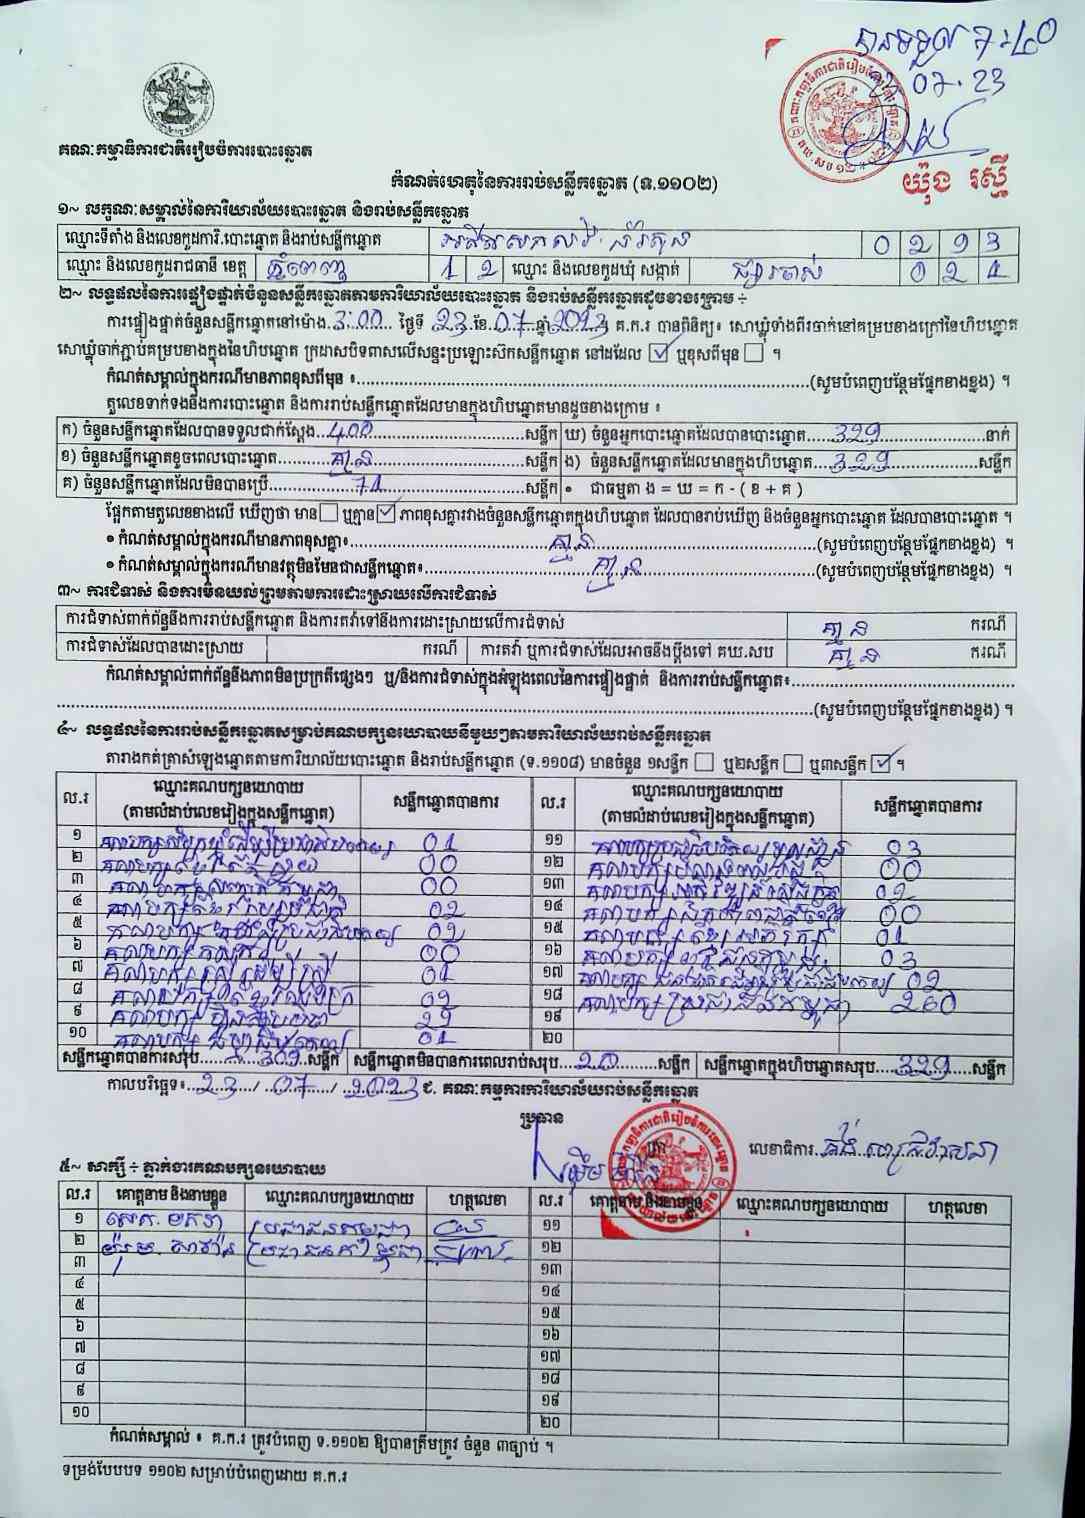 បានទទួល ៩:៤០
07.23
យ៉ុង រស្មី
គណៈកម្មាធិការជាតិរៀបចំការបោះឆ្នោត
កំណត់ហេតុនៃការរាប់សន្លឹកឆ្នោត (ទ.១១០២)
១~ លក្ខណៈសម្គាល់នៃការិយាល័យបោះឆ្នោត និងរាប់សន្លឹកឆ្នោត
ឈ្មោះទីតាំង និងលេខកូដការិ.បោះឆ្នោត និងរាប់សន្លឹកឆ្នោត 0 2 9 3
ឈ្មោះ និងលេខកូដរាជធានី ខេត្ត ភ្នំពេញ 1 2 ឈ្មោះ និងលេខកូដឃុំ សង្កាត់ ផ្សារចាស់ 0 2 4
២~ លទ្ធផលនៃការផ្ទៀងផ្ទាត់ចំនួនសន្លឹកឆ្នោតតាមការិយាល័យបោះឆ្នោត និងរាប់សន្លឹកឆ្នោតដូចខាងក្រោម ÷
ការផ្ទៀងផ្ទាត់ចំនួនសន្លឹកឆ្នោតនៅម៉ោង 3:00 ថ្ងៃទី 23 ខែ 07 ឆ្នាំ 2023 គ.ក.រ បានពិនិត្យ៖ សោឃ្លុំទាំងពីរចាក់នៅគម្របខាងក្រៅនៃហិបឆ្នោត
សោឃ្លុំចាក់ភ្ជាប់គម្របខាងក្នុងនៃហិបឆ្នោត ក្រដាសបិទពាសលើសន្ទះប្រឡោះស៊កសន្លឹកឆ្នោត នៅដដែល ☑ ឬខុសពីមុន ☐ ។
កំណត់សម្គាល់ក្នុងករណីមានភាពខុសពីមុន ៖ (សូមបំពេញបន្ថែមផ្នែកខាងខ្នង) ។
តួលេខទាក់ទងនឹងការបោះឆ្នោត និងការរាប់សន្លឹកឆ្នោតដែលមានក្នុងហិបឆ្នោតមានដូចខាងក្រោម ៖
ក) ចំនួនសន្លឹកឆ្នោតដែលបានទទួលជាក់ស្តែង 400 សន្លឹក ឃ) ចំនួនអ្នកបោះឆ្នោតដែលបានបោះឆ្នោត 329 នាក់
ខ) ចំនួនសន្លឹកឆ្នោតខូចពេលបោះឆ្នោត គ្មាន សន្លឹក ង) ចំនួនសន្លឹកឆ្នោតដែលមានក្នុងហិបឆ្នោត 329 សន្លឹក
គ) ចំនួនសន្លឹកឆ្នោតដែលមិនបានប្រើ 71 សន្លឹក • ជាធម្មតា ង = ឃ = ក - ( ខ + គ )
ផ្អែកតាមតួលេខខាងលើ ឃើញថា មាន ☐ ឬគ្មាន ☑ ភាពខុសគ្នារវាងចំនួនសន្លឹកឆ្នោតក្នុងហិបឆ្នោត ដែលបានរាប់ឃើញ និងចំនួនអ្នកបោះឆ្នោត ដែលបានបោះឆ្នោត ។
• កំណត់សម្គាល់ក្នុងករណីមានភាពខុសគ្នា៖ គ្មាន (សូមបំពេញបន្ថែមផ្នែកខាងខ្នង) ។
• កំណត់សម្គាល់ក្នុងករណីមានវត្ថុមិនមែនជាសន្លឹកឆ្នោត៖ គ្មាន (សូមបំពេញបន្ថែមផ្នែកខាងខ្នង) ។
៣~ ការជំទាស់ និងការមិនយល់ព្រមតាមការដោះស្រាយលើការជំទាស់
ការជំទាស់ពាក់ព័ន្ធនឹងការរាប់សន្លឹកឆ្នោត និងការតវ៉ាទៅនឹងការដោះស្រាយលើការជំទាស់ គ្មាន ករណី
ការជំទាស់ដែលបានដោះស្រាយ ករណី ការតវ៉ា ឬការជំទាស់ដែលអាចនឹងប្តឹងទៅ គឃ.សប គ្មាន ករណី
កំណត់សម្គាល់ពាក់ព័ន្ធនឹងភាពមិនប្រក្រតីផ្សេងៗ ឬ/និងការជំទាស់ក្នុងអំឡុងពេលនៃការផ្ទៀងផ្ទាត់ និងការរាប់សន្លឹកឆ្នោត៖
(សូមបំពេញបន្ថែមផ្នែកខាងខ្នង) ។
៤~ លទ្ធផលនៃការរាប់សន្លឹកឆ្នោតសម្រាប់គណបក្សនយោបាយនីមួយៗតាមការិយាល័យរាប់សន្លឹកឆ្នោត
តារាងកត់ត្រាសំឡេងឆ្នោតតាមការិយាល័យបោះឆ្នោត និងរាប់សន្លឹកឆ្នោត (ទ.១១០៨) មានចំនួន ១សន្លឹក ☐ ឬ២សន្លឹក ☐ ឬ៣សន្លឹក ☑ ។
ល.រ ឈ្មោះគណបក្សនយោបាយ (តាមលំដាប់លេខរៀងក្នុងសន្លឹកឆ្នោត) សន្លឹកឆ្នោតបានការ ល.រ ឈ្មោះគណបក្សនយោបាយ (តាមលំដាប់លេខរៀងក្នុងសន្លឹកឆ្នោត) សន្លឹកឆ្នោតបានការ
១ 01 ១១ 03
២ 00 ១២ 00
៣ 00 ១៣ 02
៤ 02 ១៤ 00
៥ 02 ១៥ 01
៦ 00 ១៦ 03
៧ 01 ១៧ 02
៨ 02 ១៨ គណបក្សប្រជាជនកម្ពុជា 260
៩ 29 ១៩
១០ 01 ២០
សន្លឹកឆ្នោតបានការសរុប 309 សន្លឹក សន្លឹកឆ្នោតមិនបានការពេលរាប់សរុប 20 សន្លឹក សន្លឹកឆ្នោតក្នុងហិបឆ្នោតសរុប 329 សន្លឹក
កាលបរិច្ឆេទ៖ 23 / 07 / 2023 ជ. គណៈកម្មការការិយាល័យរាប់សន្លឹកឆ្នោត
ប្រធាន
លេខាធិការ
៥~ សាក្សី ÷ ភ្នាក់ងារគណបក្សនយោបាយ
ល.រ គោត្តនាម និងនាមខ្លួន ឈ្មោះគណបក្សនយោបាយ ហត្ថលេខា ល.រ គោត្តនាម និងនាមខ្លួន ឈ្មោះគណបក្សនយោបាយ ហត្ថលេខា
១ ប្រជាជនកម្ពុជា ១១
២ ប្រជាជនកម្ពុជា ១២
៣ ១៣
៤ ១៤
៥ ១៥
៦ ១៦
៧ ១៧
៨ ១៨
៩ ១៩
១០ ២០
កំណត់សម្គាល់ ៖ គ.ក.រ ត្រូវបំពេញ ទ.១១០២ ឱ្យបានត្រឹមត្រូវ ចំនួន ៣ច្បាប់ ។
ទម្រង់បែបបទ ១១០២ សម្រាប់បំពេញដោយ គ.ក.រ